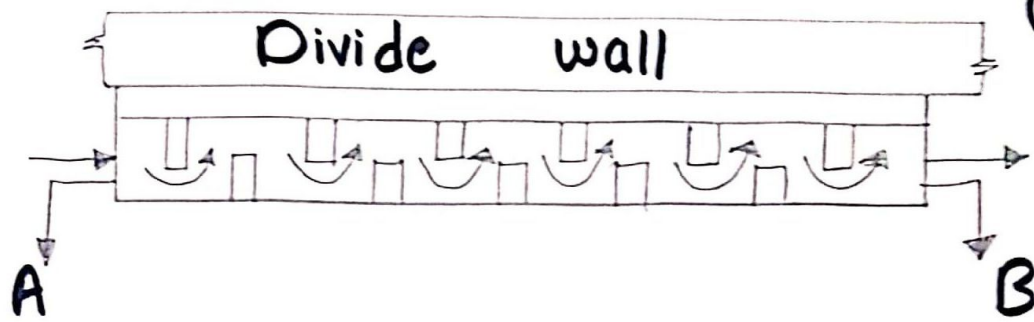 Divide wall
A
B